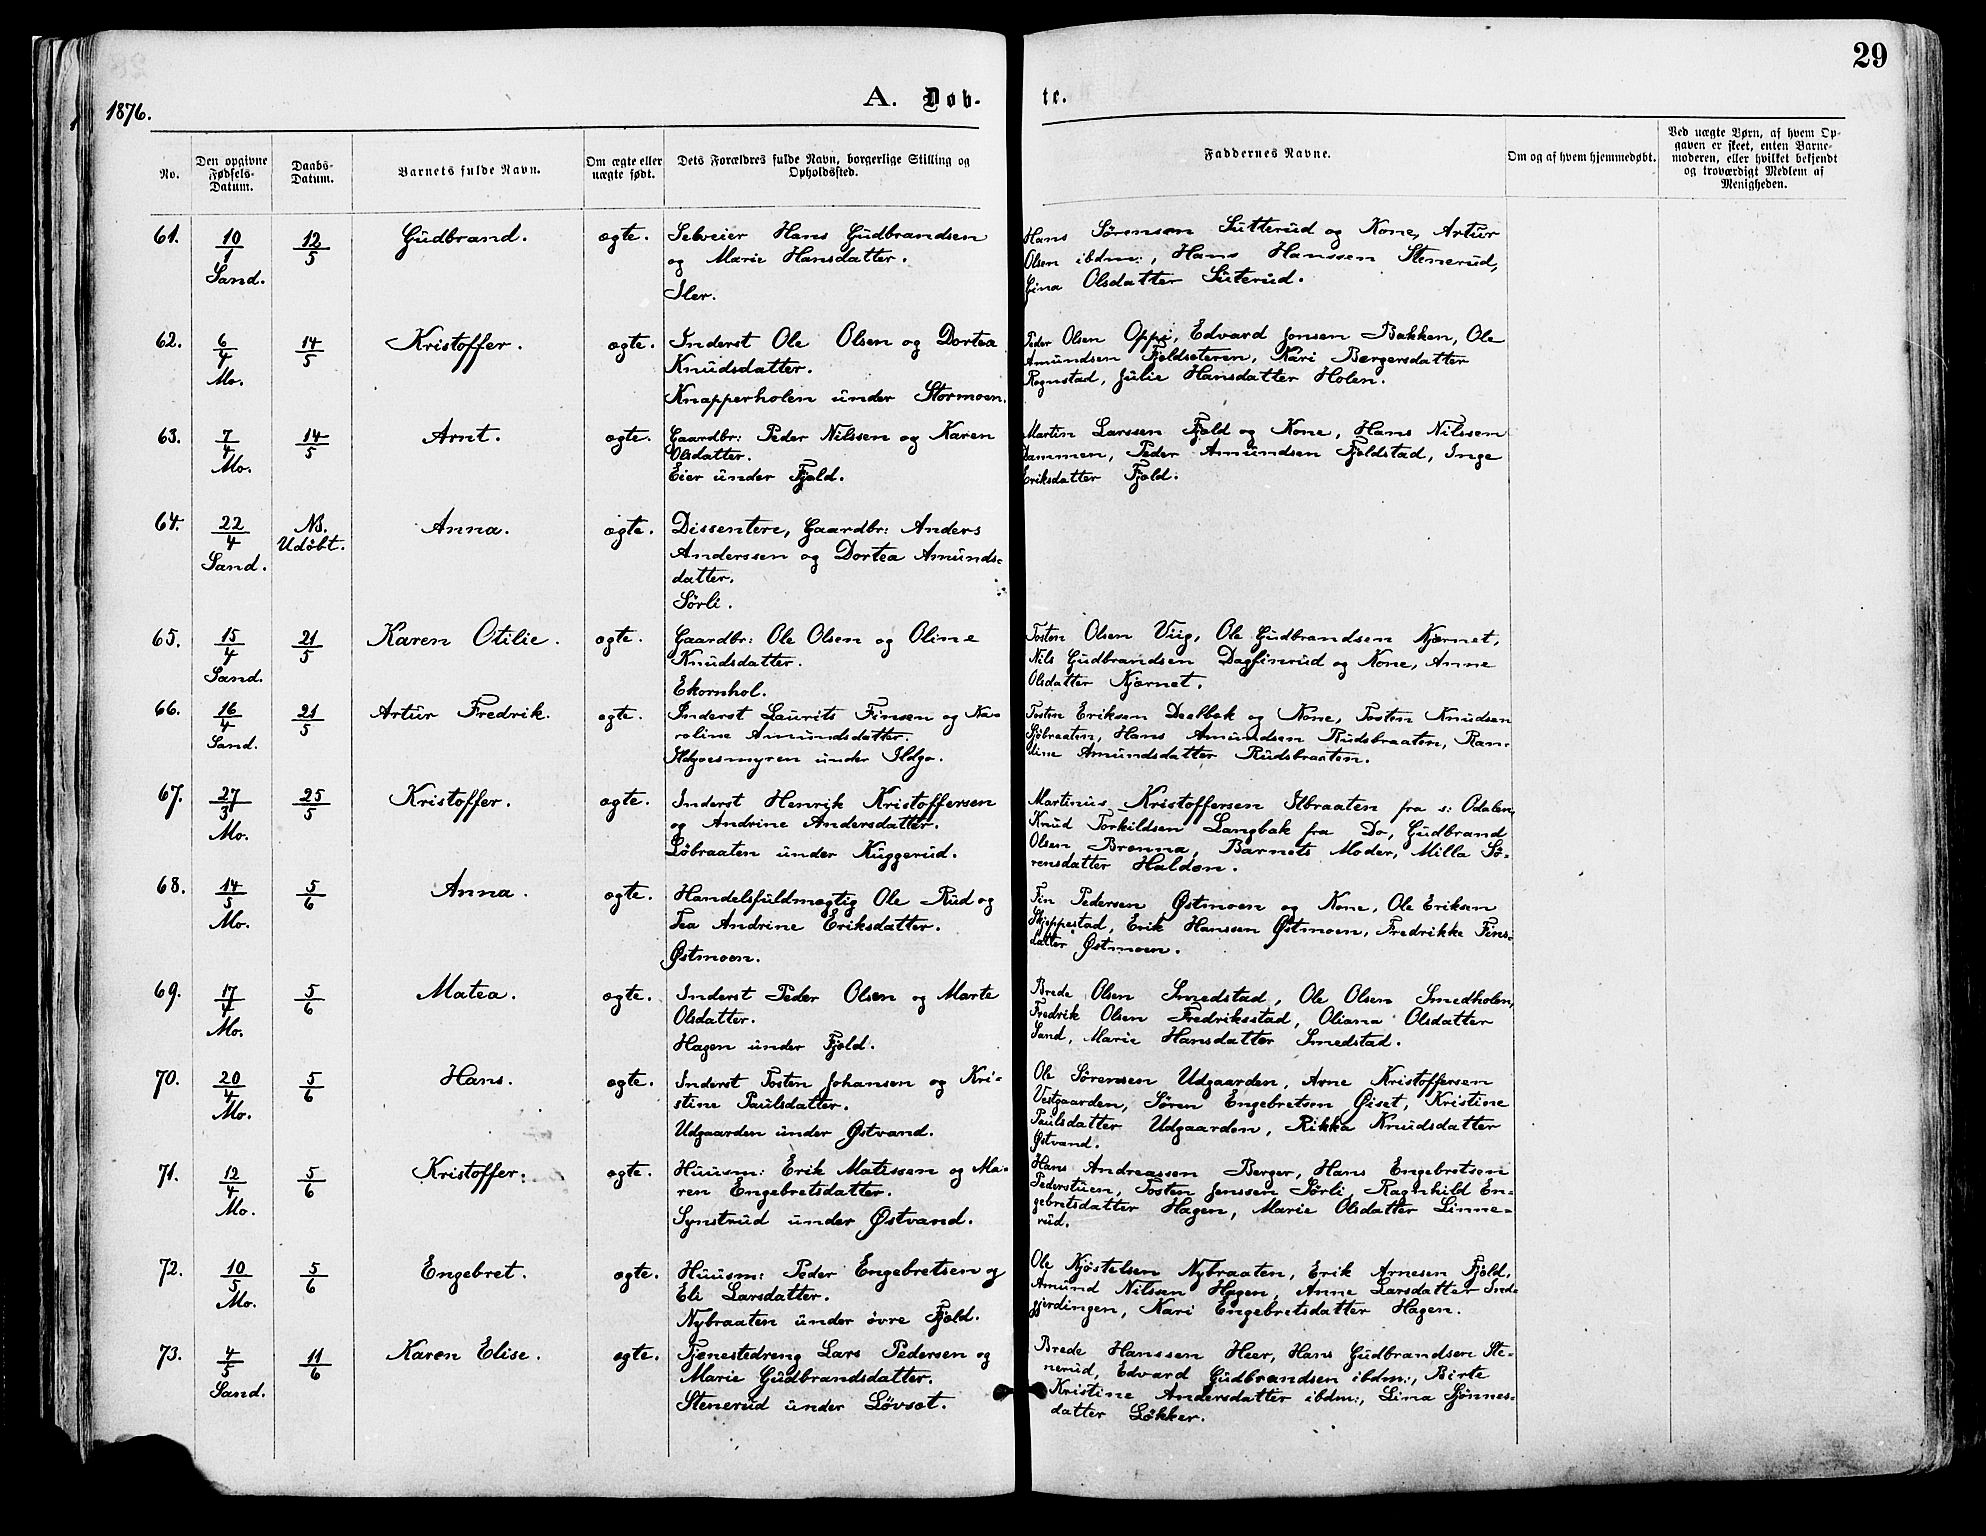 29
1876.
A. Døb-
te.
No.
Den opgivne
Fødsels-
Datum.
Daabs-
Datum.
Barnets fulde Navn.
Om ægte eller
uægte født.
Dets Forældres fulde Navn, borgerlige Stilling og
Opholdssted.
Faddernes Navne.
Om og af hvem hjemmedøbt.
Ved uægte Børn, af hvem Op-
gaven er skeet, enten Barne-
moderen, eller hvilket bekjendt
og troværdigt Medlem af
Menigheden.
61.
10/1
Sand.
12/5
Gudbrand.
ægte.
Selveier Hans Gudbrandsen
og Marie Hansdatter.
Sler.
Hans Sørensen Sutterud og Kone, Artur
Olsen ibdm:, Hans Hanssen Stenerud,
Lina Olsdatter Suterud.
62.
6/4
Mo.
14/5
Kristoffer.
ægte.
Inderst Ole Olsen og Dortea
Knudsdatter.
Knapperholen under Stormoen.
Peder Olsen Oppi, Edvard Jonsen Bakken, Ole
Amundsen Fjeldseteren, Kari Bergersdatter
Rognstad, Julie Hansdatter Holen.
63.
7/4
Mo.
14/5
Arnt.
ægte.
Gaardbr: Peder Nilssen og Karen
Olsdatter.
Eier under Fjeld.
Martin Larssen Fjeld og Kone, Hans Nilssen
Dammen, Peder Amundsen Fjeldstad, Inge
Eriksdatter Fjeld.
64.
22/4
Sand.
NB.
Udøbt.
Anna.
ægte.
Dissentere, Gaardbr: Anders
Anderssen og Dortea Amunds-
datter.
Sørli.
65.
15/4
Sand.
21/5
Karen Otilie.
ægte.
Gaardbr: Ole Olsen og Oline
Knudsdatter.
Ekornhol.
Tosten Olsen Viig, Ole Gudbrandsen Kjærnet,
Nils Gudbrandsen Dagfinrud og Kone, Anne
Olsdatter Kjærnet.
66.
16/4
Sand.
21/5
Artur Fredrik.
ægte.
Inderst Laurits Finsen og Ka-
roline Amundsdatter.
under Ildgo.
Tosten Eriksen Deelbæk og Kone, Tosten Knudsen
Sjøbraaten, Hans Amundsen Rudsbraaten, Ran-
dine Amundsdatter Rudsbraaten.
67.
27/3
Mo.
25/5
Kristoffer.
ægte.
Inderst Henrik Kristoffersen
og Andrine Andersdatter.
Løbraaten under Kuggerud.
Martinus Kristoffersen Ilbraaten fra s: Odalen,
Knud Torkildsen Langbæk fra Do, Gudbrand
Olsen Brenna, Barnets Moder, Milla Sø-
rensdatter Halden.
68.
14/5
Mo.
5/6
Anna.
ægte.
Handelsfuldmægtig Ole Rud og
Tea Andrine Eriksdatter.
Østmoen.
Fin Pedersen Østmoen og Kone, Ole Eriksen
Skjeppestad, Erik Hanssen Østmoen, Fredrikke Fins-
datter Østmoen.
69.
17/4
Mo.
5/6
Matea.
ægte.
Inderst Peder Olsen og Marte
Olsdatter.
Hagen under Fjeld.
Brede Olsen Smedstad, Ole Olsen Smedholen,
Fredrik Olsen Fredriksstad, Oliana Olsdatter
Sand, Marie Hansdatter Smedstad.
70.
20/4
Mo.
5/6
Hans.
ægte.
Inderst Tosten Johansen og Kri-
stine Paulsdatter.
Udgaarden under Østvand.
Ole Sørensen Udgaarden, Arne Kristoffersen
Vestgaarden, Søren Engebretsen Øiset, Kristine
Paulsdatter Udgaarden, Rikka Knudsdatter
Østvand.
71.
12/4
Mo.
5/6
Kristoffer.
ægte.
Huusm: Erik Matissen og Ma-
ren Engebretsdatter.
Synstrud under Østvand.
Hans Andreassen Berger, Hans Engebretsen
Pederstuen, Tosten Jenssen Sørli Ragnhild En-
gebretsdatter Hagen, Marie Olsdatter Linne-
rud.
72.
10/5
Mo.
5/6
Engebret.
ægte.
Huusm: Peder Engebretsen og
Eli Larsdatter.
Nybraaten under øvre Fjeld.
Ole Kjøstelsen Nybraaten, Erik Arnesen Fjeld,
Amund Nilssen Hagen, Anne Larsdatter Ind-
gjerdingen, Kari Engebretsdatter Hagen.
73.
4/5
Sand.
11/6
Karen Elise.
ægte.
Tjenestedreng Lars Pedersen og
Marie Gudbrandsdatter.
Stenerud under Løvset.
Brede Hanssen Heer, Hans Gudbrandsen Ste-
nerud, Edvard Gudbrandsen ibdm:, Birte
Kristine Andersdatter ibdm:, Lina Sjønnes-
datter Løkker.